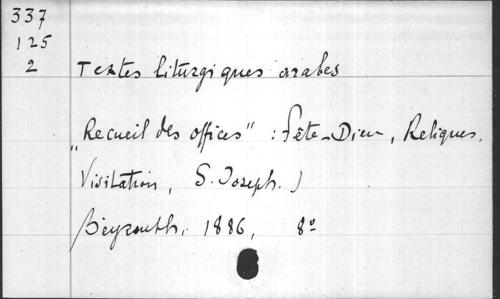 337
125
2
Textes liturgiques arabes
„Recueil des offices" : Fête-Dieu, Reliques,
Visitation, S. Joseph.)
Beyrouth, 1886, 8º